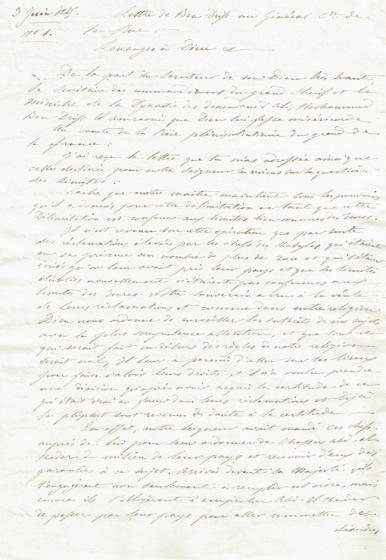 3 Juin 1845. Lettre de Ben Driss au Général Cte de
N° 1. la Rue
Louanges à Dieu &
De la part du serviteur de son Dieu très haut,
le Secrétaire des commandements du grand Chérif et le
Ministre de la Dynastie des descendants d'Ali, Mohammed
Ben Driss El que Dieu lui fasse miséricorde
Au comte de la Rüe plénipotentiaire du grand de
la France:
J'ai reçu la lettre que tu m'as adressée ainsi que
celle destinée pour notre Seigneur relatives sur la question
des limites:
Sache que notre maître maintient tous les pouvoirs
qu'il a donnés pour cette délimitation en tant que cette
Délimitation est conforme aux limites bien connues des Turcs.
Il n'est revenu sur cette opération que par suite
des réclamations élevées par les chefs des Kabyles qui étaient
en sa présence au nombre de plus de 200 et qui s'étaient
écriés qu'on leur avait pris leur pays et que les limites
établies nouvellement n'étaient pas conformes aux
limites des Turcs. Notre Souverain a cru à la vérité
de leurs réclamations et comme dans notre religion
Dieu nous ordonne de surveiller les intérêts de nos sujets
avec la plus scrupuleuse attention, et que tout ce
qui serait fait en dehors des règles de notre religion
serait nul, Il leur a permis d'aller sur les lieux
pour faire valoir leurs droits et il n'a voulu prendre
une décision qu'après avoir acquis la certitude de ce
qu'il était vrai ou faux dans leurs réclamations et déjà
la plupart sont revenus du doute à la certitude.
En effet, notre Seigneur avait mandé ces chefs
auprès de lui pour leur ordonner de chasser Abd-el
Kader du milieu de leur pays et recevoir d'eux des
garanties à ce sujet. Arrivés devant Sa Majesté ils
s'engagèrent non seulement à remplir cet ordre, mais
encore ils s'obligèrent à empêcher Abd-El Kader
de passer par leur pays pour aller commettre des
désordres